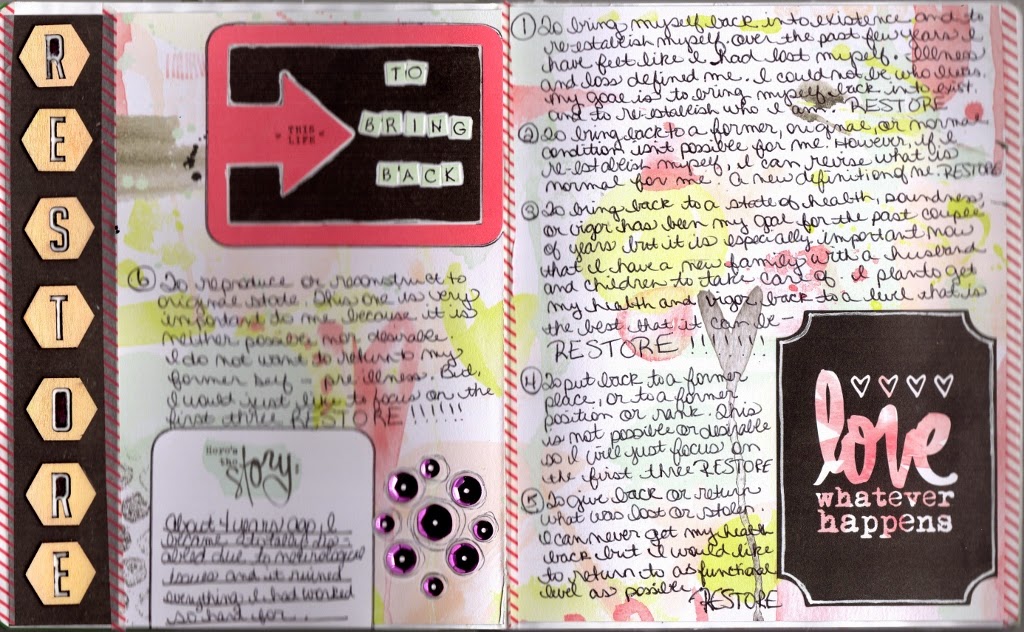 R
E
S
T
O
R
E
TO
BRING
BACK
THIS
LIFE
6 To reproduce or reconstruct to
original state. This one is very
important to me because it is
neither possible nor desirable.
I do not want to return to my
former self - pre illness. But,
I would just like to focus on the
first three RESTORE !!!!!!
Here's
the
story:
About 4 years ago, I
became totally dis-
abled due to neurological
issues and it ruined
everything I had worked
so hard for...
1 To bring myself back into existence and to
re-establish myself. Over the past few years I
have felt like I had lost myself. Illness
and loss defined me. I could not be who I was.
My goal is to bring myself back into exist.
and to re-establish who I am. RESTORE
2 To bring back to a former, original, or normal
condition isn't possible for me. However, if I
re-establish myself, I can revise what is
normal for me. A new definition of me. RESTORE
3 To bring back to a state of health, soundness,
or vigor has been my goal for the past couple
of years but it is especially important now
that I have a new family with a husband
and children to take care of. I plan to get
my health and vigor back to a level that is
the best that it can be -
RESTORE !!!!!!!
4 To put back to a former
place, or to a former
position or rank. This
is not possible or desirable
so I will just focus on
the first three RESTORE
5 To give back or return
what was lost or stolen.
I can never get my health
back but I would like
to return to as functional
level as possible. RESTORE
love
whatever
happens